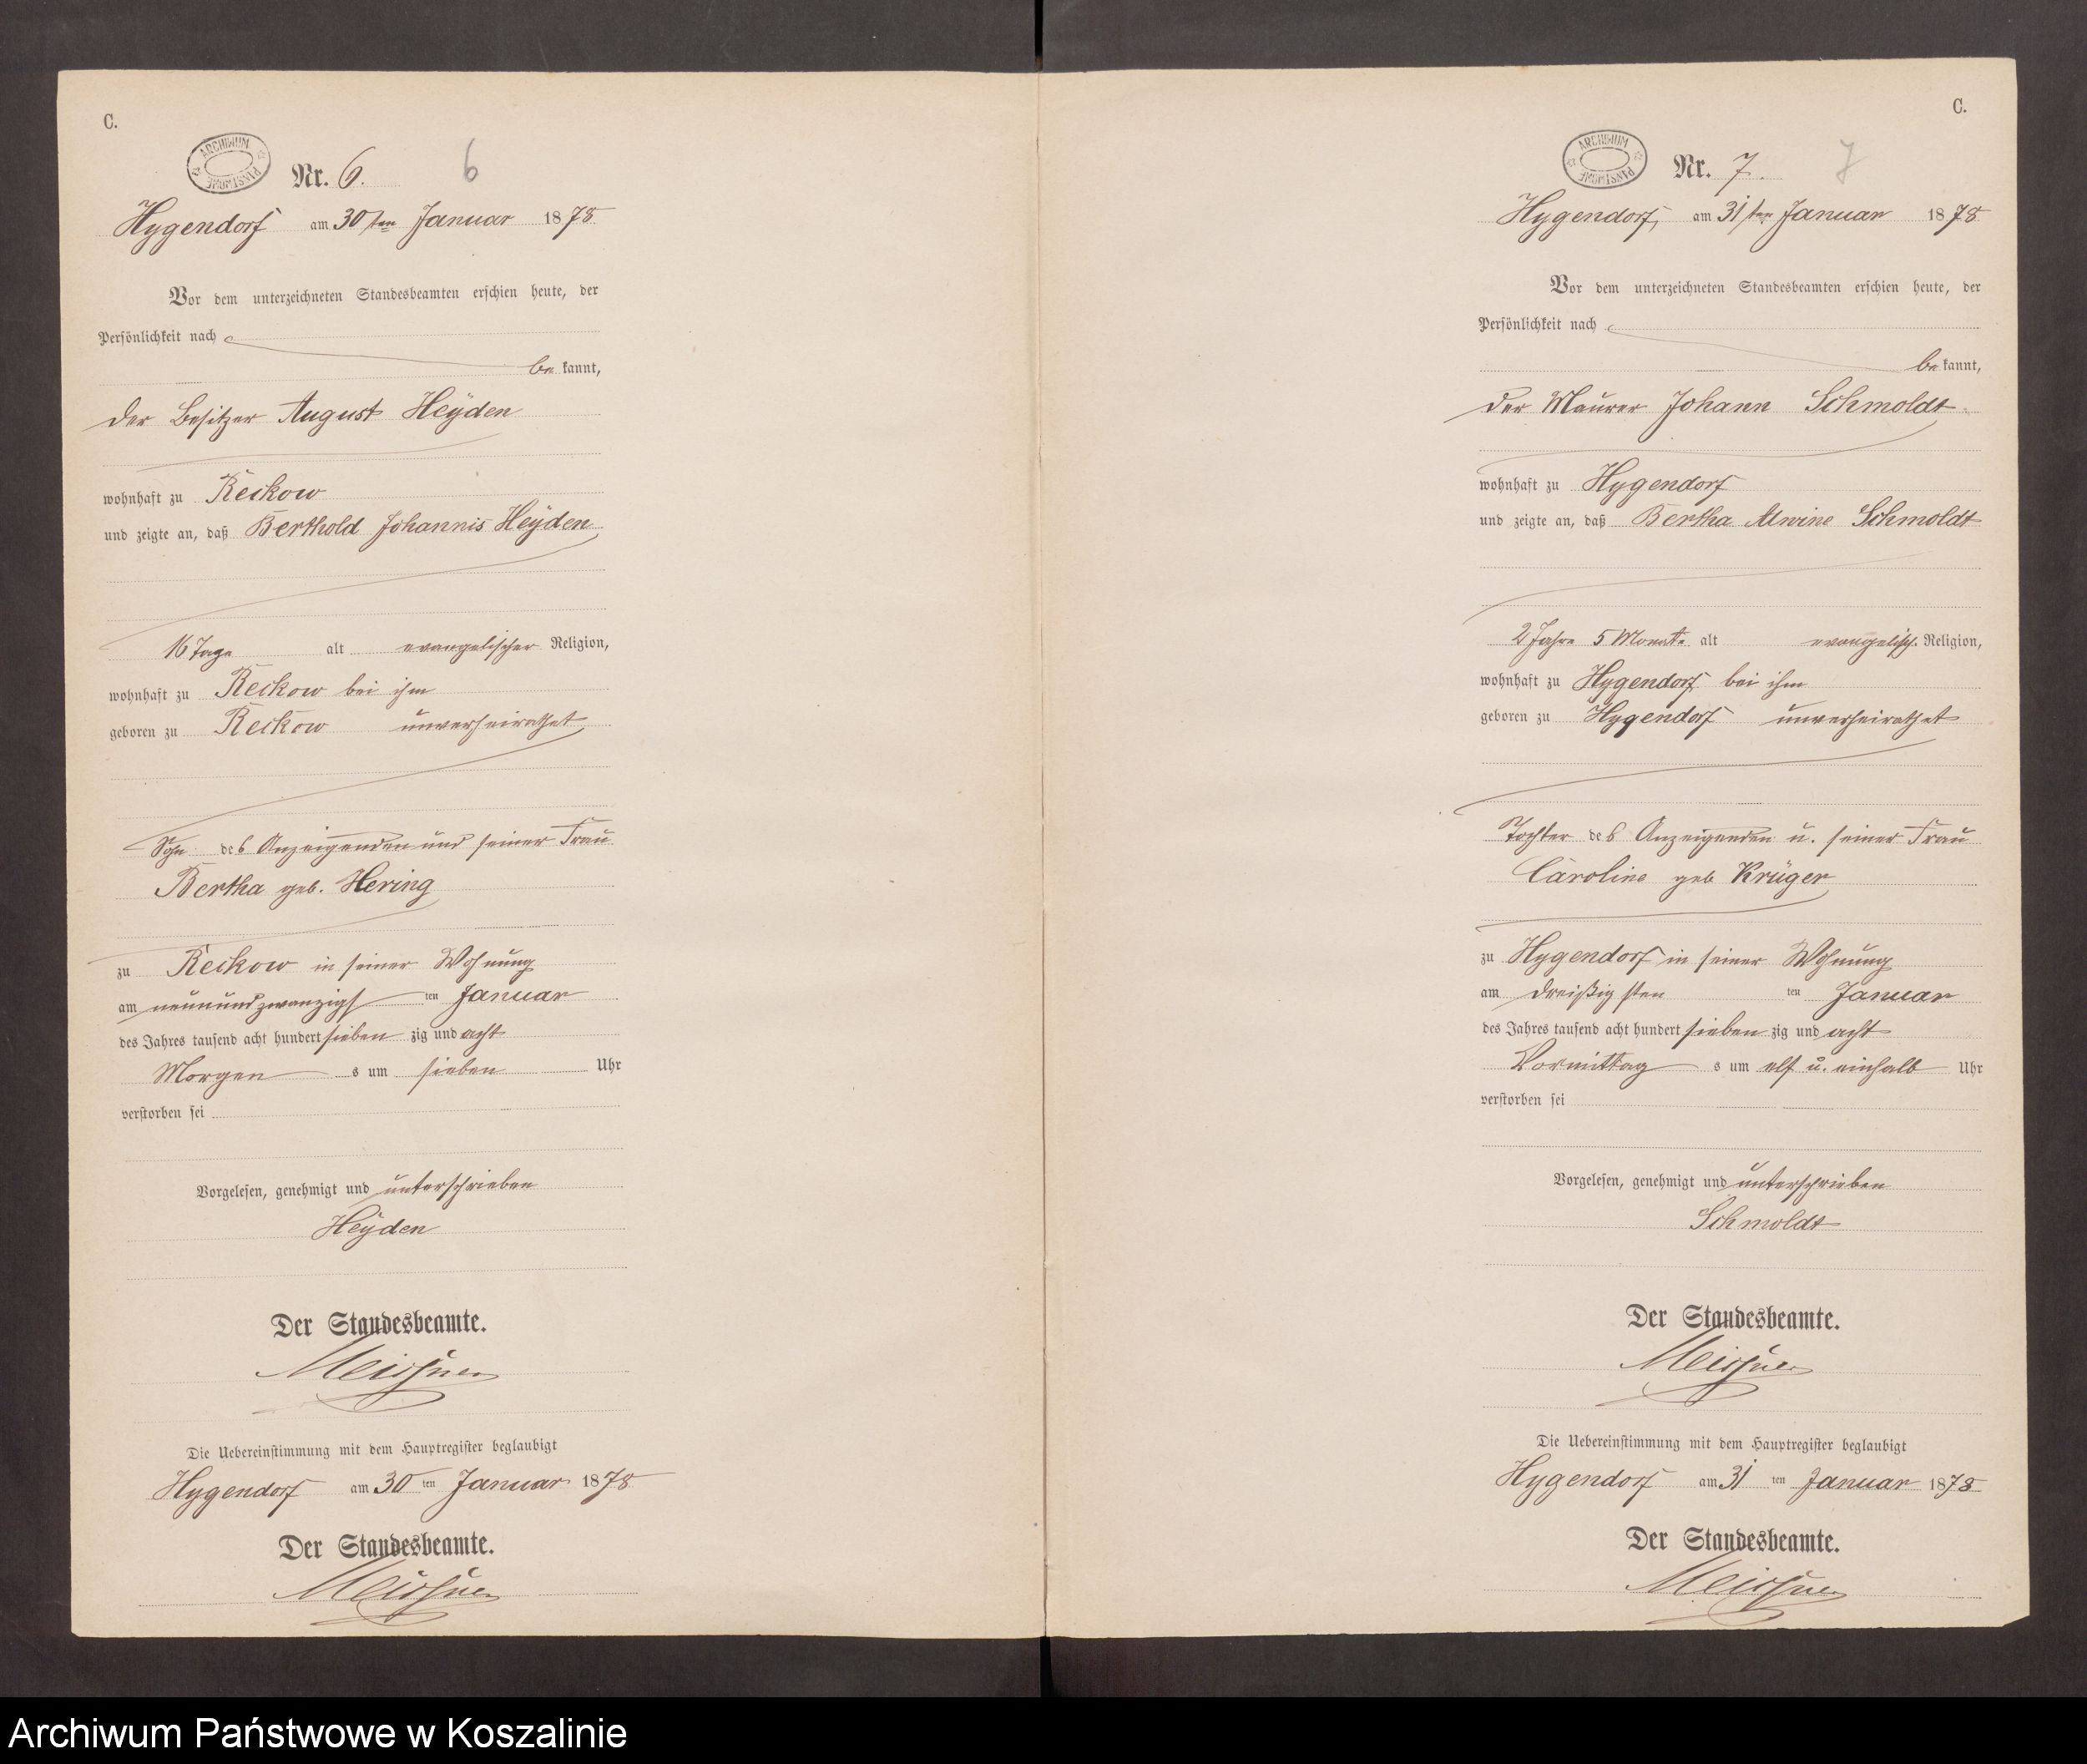 C.
ARCHIWUM PAŃSTWOWE
Nr. 6. 6
Hygendorf am 30sten Januar 1878
Vor dem unterzeichneten Standesbeamten erschien heute, der
Persönlichkeit nach
be kannt,
der Besitzer August Heÿden
wohnhaft zu Reckow
und zeigte an, daß Berthold Johannis Heÿden
16 Tage alt evangelischer Religion,
wohnhaft zu Reckow bei ihm
geboren zu Reckow unverheirathet
Sohn des Anzeigenden und seiner Frau
Bertha geb. Hering
zu Reckow in seiner Wohnung
am neunundzwanzigs ten Januar
des Jahres tausend acht hundert sieben zig und acht
Morgen s um sieben Uhr
verstorben sei
Vorgelesen, genehmigt und unterschrieben
Heÿden
Der Standesbeamte.
Meissner
Die Uebereinstimmung mit dem Hauptregister beglaubigt
Hygendorf am 30 ten Januar 1878
Der Standesbeamte.
Meissner
C.
ARCHIWUM PAŃSTWOWE
Nr. 7. 7
Hygendorf, am 31sten Januar 1878
Vor dem unterzeichneten Standesbeamten erschien heute, der
Persönlichkeit nach
be kannt,
der Maurer Johann Schmoldt
wohnhaft zu Hygendorf
und zeigte an, daß Bertha Alwine Schmoldt
2 Jahre 5 Monate alt evangelisch. Religion,
wohnhaft zu Hygendorf bei ihm
geboren zu Hygendorf unverheirathet
Tochter des Anzeigenden u. seiner Frau
Caroline geb Krüger
zu Hygendorf in seiner Wohnung
am dreißigsten ten Januar
des Jahres tausend acht hundert sieben zig und acht
Vormittag s um elf u. einhalb Uhr
verstorben sei
Vorgelesen, genehmigt und unterschrieben
Schmoldt
Der Standesbeamte.
Meissner
Die Uebereinstimmung mit dem Hauptregister beglaubigt
Hygendorf am 31 ten Januar 1878
Der Standesbeamte.
Meissner
Archiwum Państwowe w Koszalinie